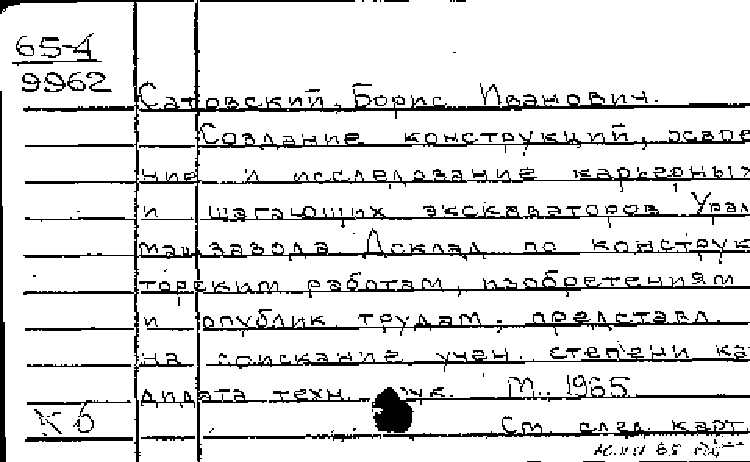 65-4
9962
Сатовский, Борис Иванович.
Создание конструкций, освое
ние и исследование карьерных
и шагающих экскаваторов Урал
машзавода Доклад по конструк
торским работам, изобретениям
и опублик трудам, представл.
на соискание учен. степени кан
дидата техн. наук. М., 1965
Кб
См. след. карт.